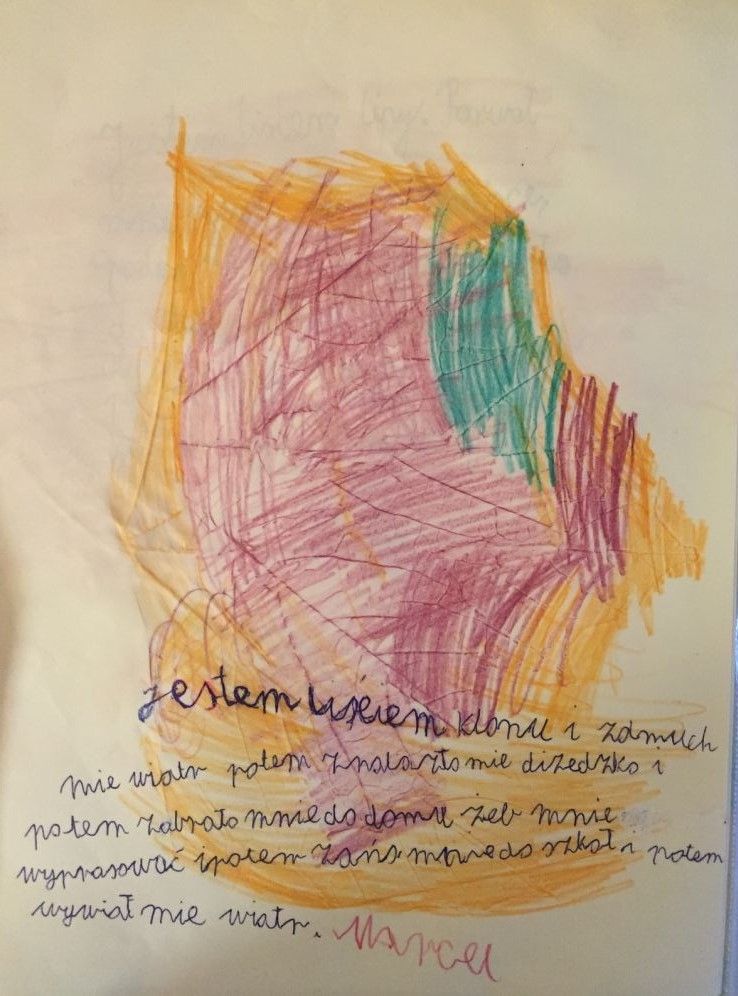 Jestem Liściem klonu i zdmuch
mie wiatr potem znalazło mie dizedzko i
potem zabrało mnie do domu żeb mnie
wyprasować i potem zańs mnie do szkoł i potem
wywiał mie wiatr. Marcel